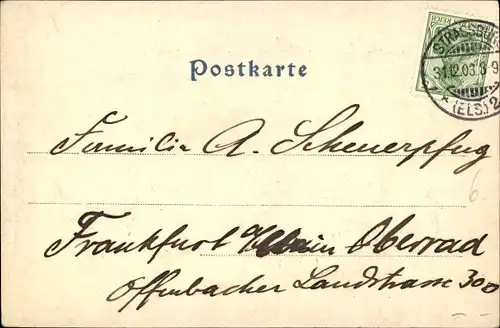 STRASSBURG
31.12.03. 8-9
* (ELS.) 2
REICH
Postkarte
Familie A. Scheuerpflug
Frankfurt a/Main Oberrad
Offenbacher Landstrasse 300
6